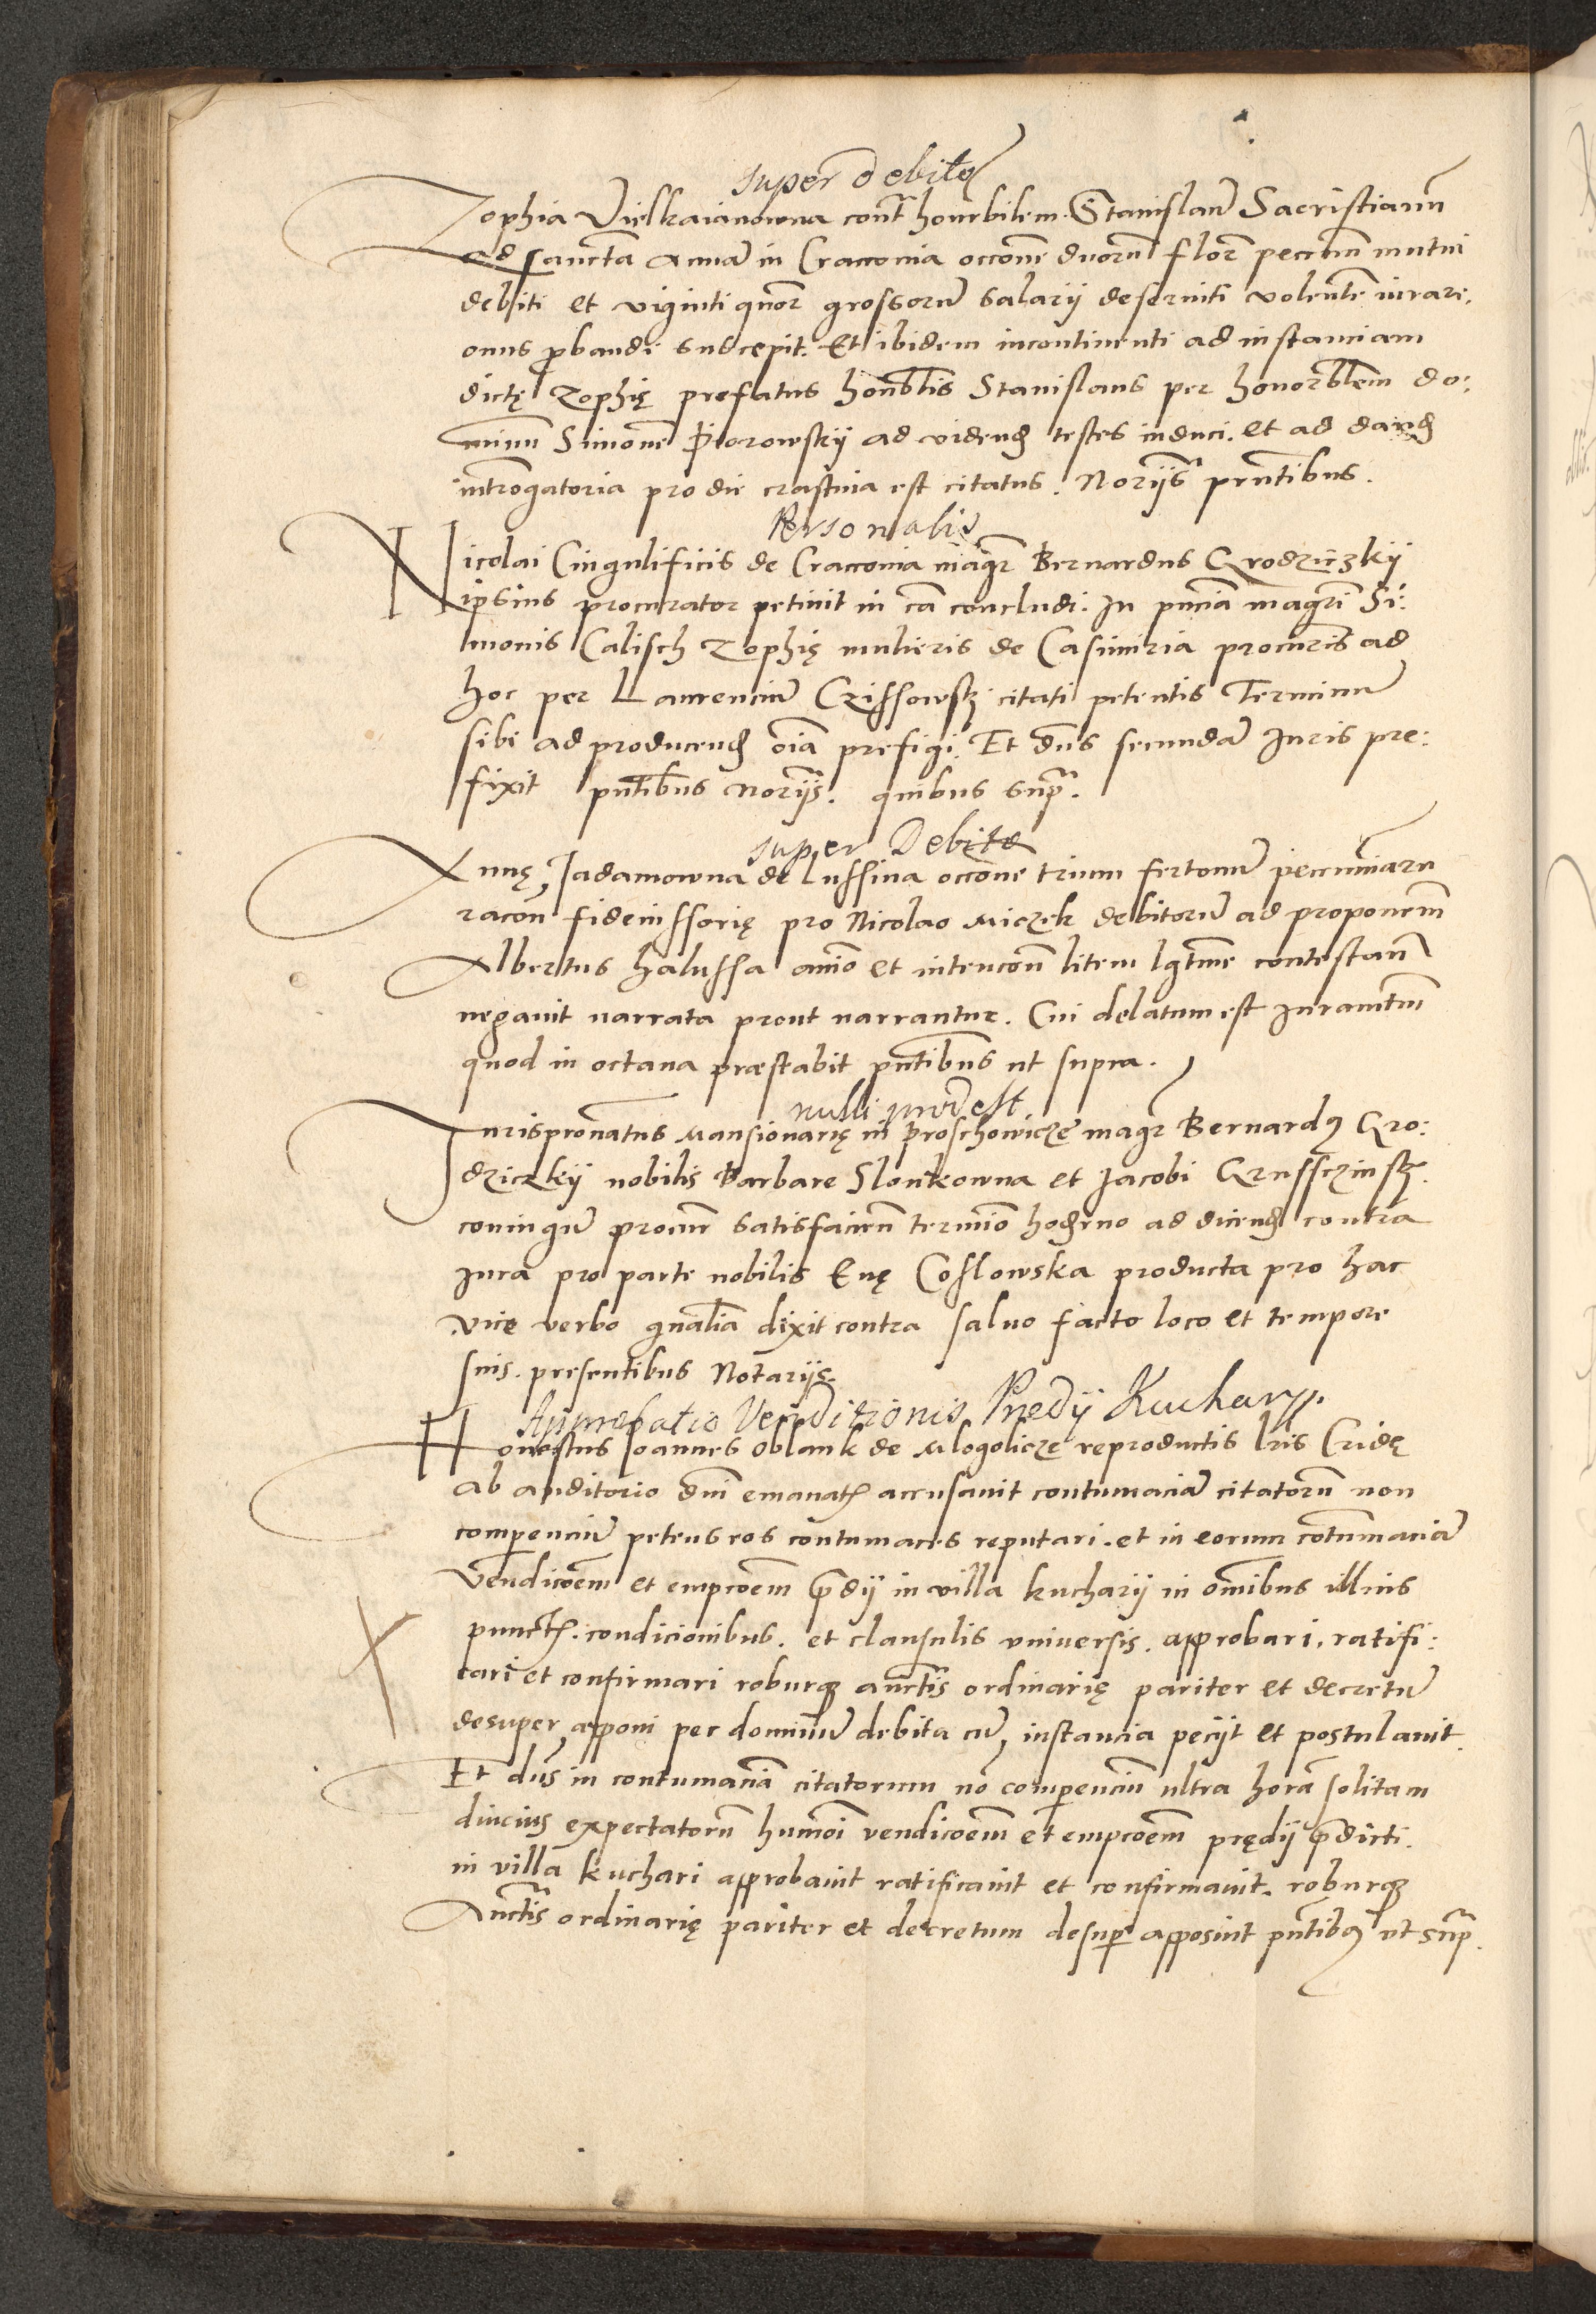 super debito
Zophia Vielkaianowna cont honrbilem Stanislaū Sacristianū
ad sanctā Annā in Cracouia occoñe duorū flor pecunū mutui
debiti et viginti quor grossorū salarij deseruiti volentē iurare.
onus ꝓbandi suscepit. Et ibidem incontinenti ad instanciam
dictę Zophię prefatus honoblis Stanislaus per honorblem do:
minū Simonē Piorowskij ad videnđ testes induci. et ad danđ
introgatoria pro die crastina est citatus. Norijs pñtibus.
Personalis
Nicolai Cingulificis de Cracouia magr Bernardus Grodziczkij
ipsius procurator petiuit in cā concludi. In pñciā magri Si:
monis Calisch Zophię mulieris de Casimiria procuris ad
hoc per Laurenciū Czissowsk citati petentis Terminū
sibi ad producenđ oīa prefigi. Et dñs secundā Iuris pre:
fixit pñtibus Norijs. quibus supr.
super Debito
Annę Jadamowna de Lussina occoñe trium fertonū pecuniarū
racoñ fideiussorię pro Nicolao Miczek debitorū ad proponem
Albertus Halussa aīo et intencoñ litem lgtme contestan
negauit narrata prout narrantur. Cui delatum est Iuramtum
quod in octaua præstabit pñtibus ut supra.
Iurispronatus Mansionarię in Proschowicze magr Bernardꝰ Gro:
dziczkij nobilis Barbare Slonkowna et Jacobi Grussczinsk.
coniugū procur satisfacien termīo hodierno ad dicenđ contra
Iura pro parte nobilis Euę Coslowska producta pro hac
vice verbo gnalia dixit contra saluo facto loco et tempore
suis. presentibus Notarijs.
Approbatio Venditionis Prædij Kuchary.
Honestus Joannes Oblank de Mlogolicze reproductis lris Cridę
ab auditorio dñi emanatꝭ accusauit contumaciā citatorū non
comperenciū petens eos contumaces reputari. et in eorum contumaciā
Vendicoēm et empcoēm prdij in villa kucharij in omībus illius
punctꝭ. condicionibus. et clausulis vniuersis. approbari, ratifi:
cari et confirmari roburqꝫ auctis ordinarię pariter et decretū
desuper apponi per dominū debita cū instancia pecijt et postulauit.
Et dñs in contumaciā citatorum nō comperenciū ultra horā solitam
diucius expectatorū humoī vendicoēm et empcoēm prędij prdicti.
in villa kuchari approbauit ratificauit et confirmauit. roburqꝫ
Auctis ordinarię pariter et decretum desup apposuit pñtibꝰ vt supr.